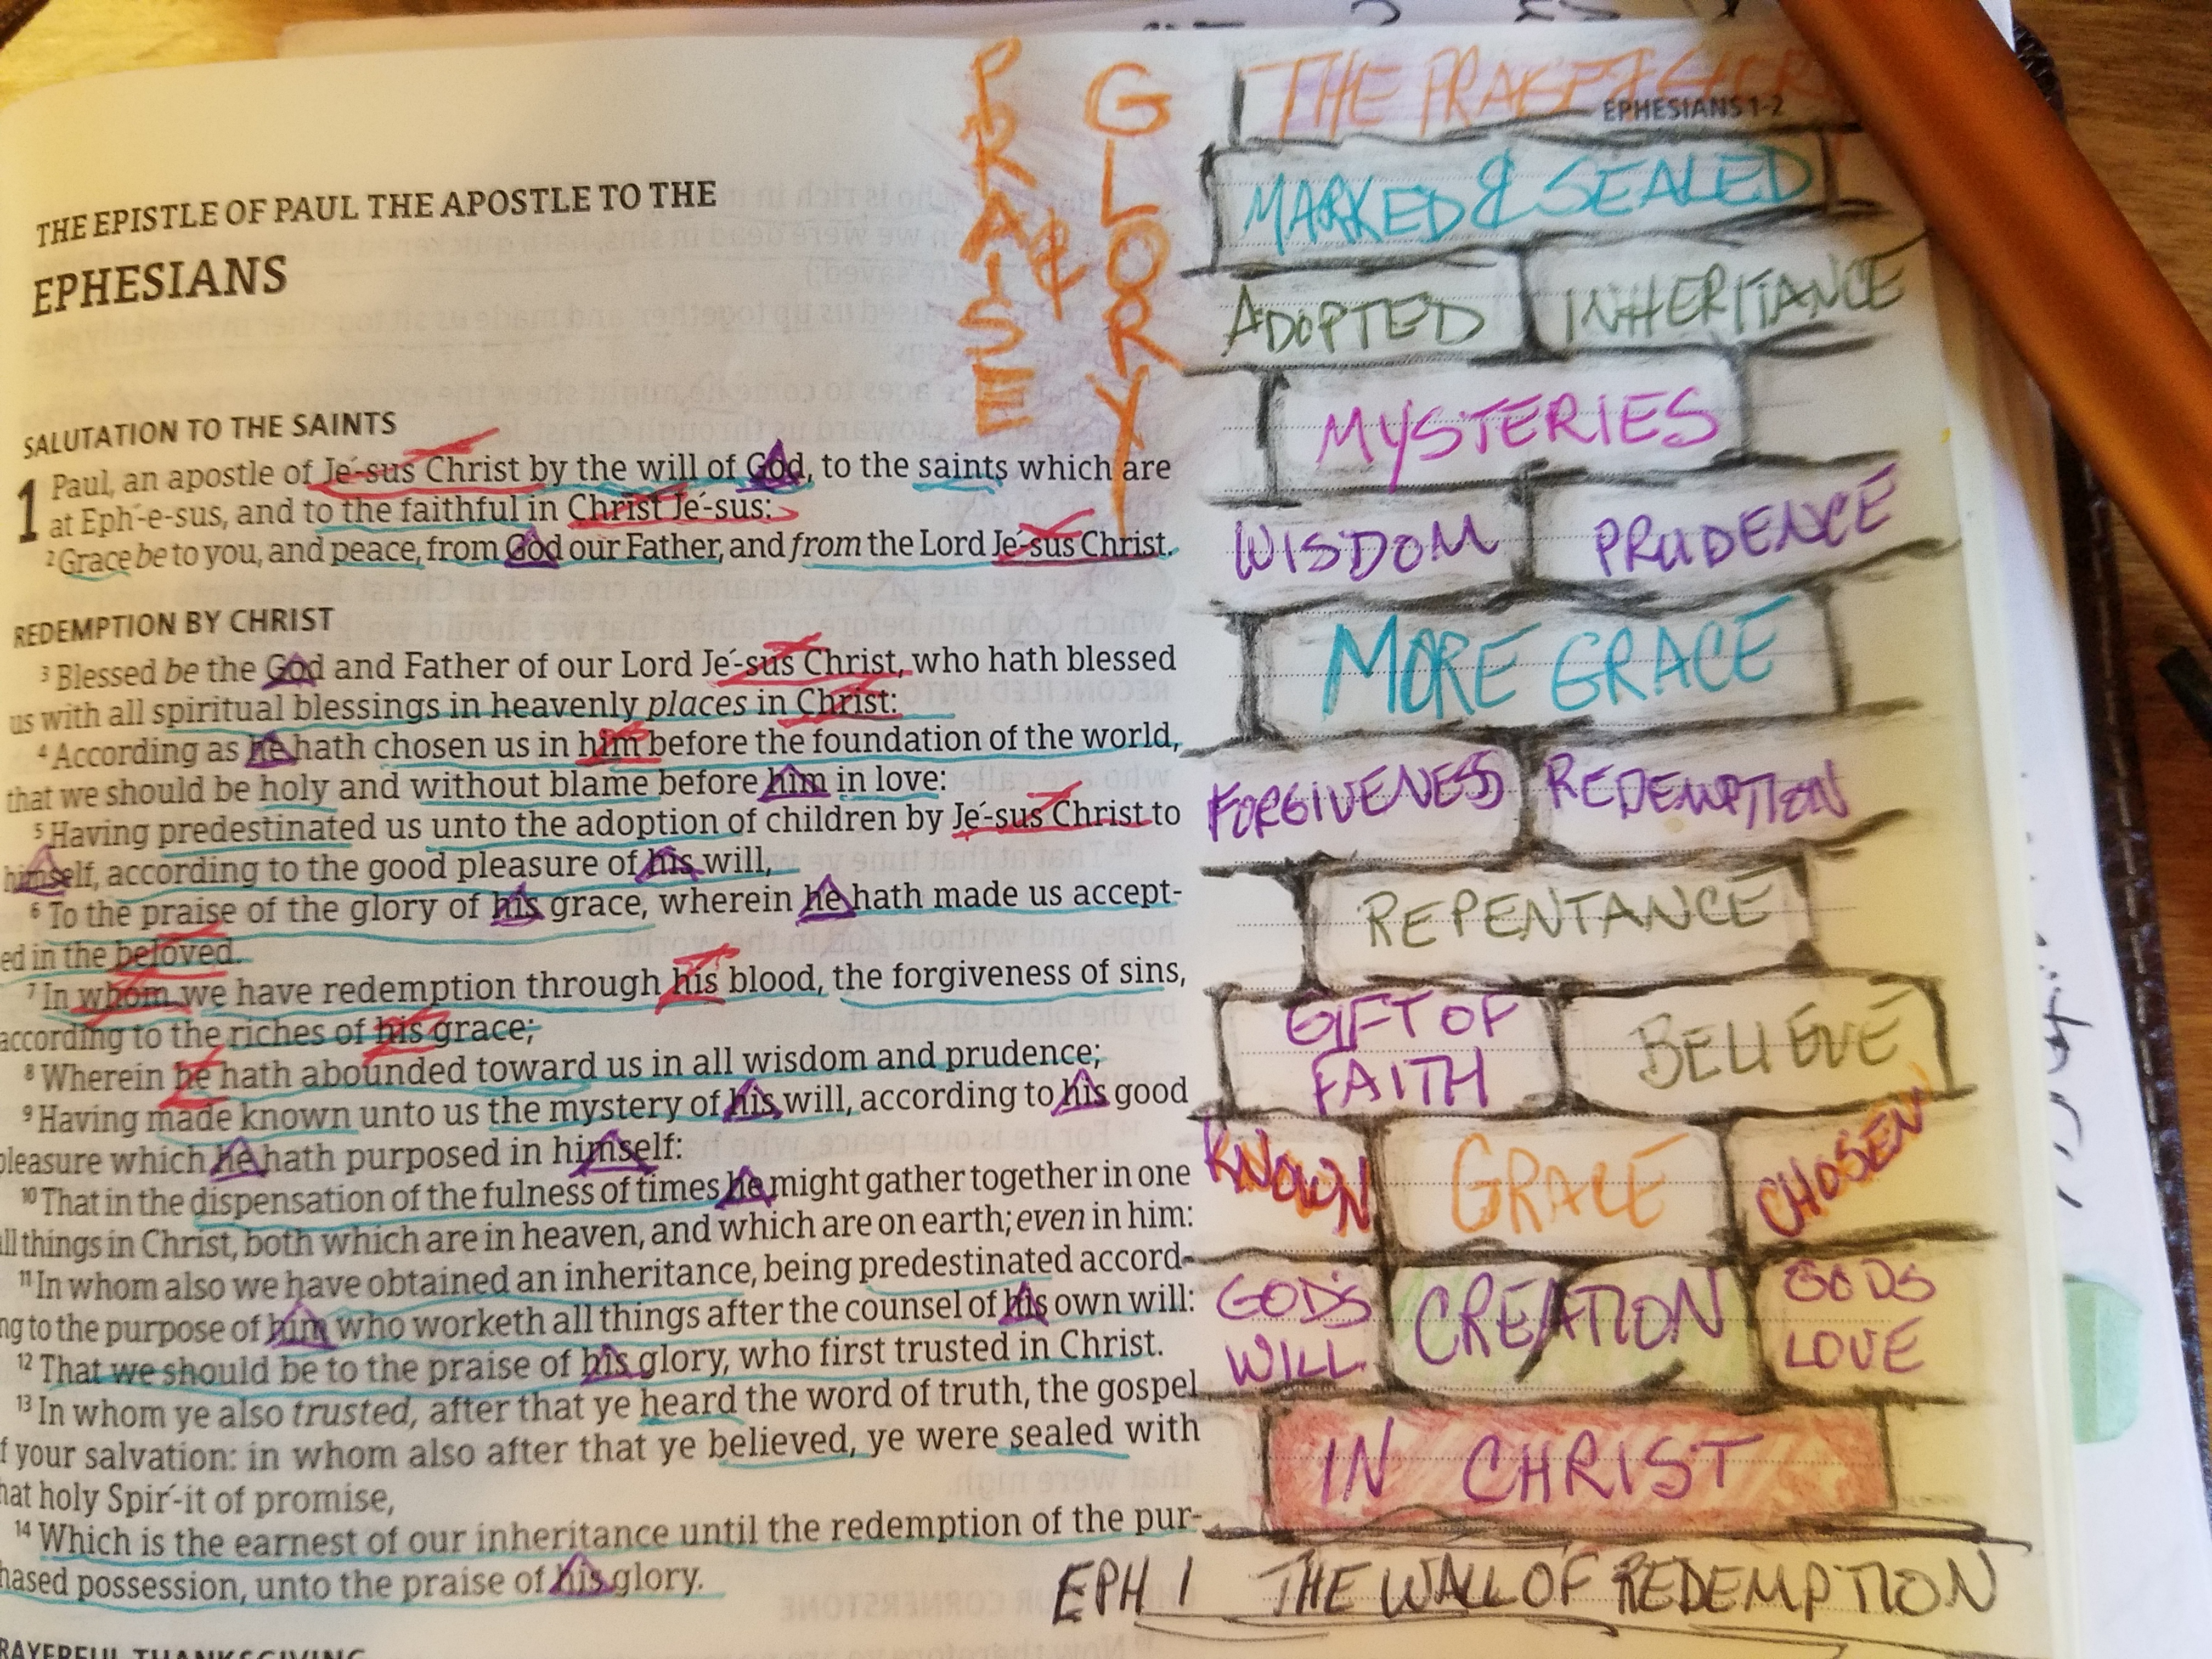 THE EPISTLE OF PAUL THE APOSTLE TO THE
EPHESIANS
SALUTATION TO THE SAINTS
1 Paul, an apostle of Je´-sus Christ by the will of God, to the saints which are
at Eph´-e-sus, and to the faithful in Christ Je´-sus:
2 Grace be to you, and peace, from God our Father, and from the Lord Je´-sus Christ.
REDEMPTION BY CHRIST
3 Blessed be the God and Father of our Lord Je´-sus Christ, who hath blessed
us with all spiritual blessings in heavenly places in Christ:
4 According as he hath chosen us in him before the foundation of the world,
that we should be holy and without blame before him in love:
5 Having predestinated us unto the adoption of children by Je´-sus Christ to
himself, according to the good pleasure of his will,
6 To the praise of the glory of his grace, wherein he hath made us accept-
ed in the beloved.
7 In whom we have redemption through his blood, the forgiveness of sins,
according to the riches of his grace;
8 Wherein he hath abounded toward us in all wisdom and prudence;
9 Having made known unto us the mystery of his will, according to his good
pleasure which he hath purposed in himself:
10 That in the dispensation of the fulness of times he might gather together in one
all things in Christ, both which are in heaven, and which are on earth; even in him:
11 In whom also we have obtained an inheritance, being predestinated accord-
ng to the purpose of him who worketh all things after the counsel of his own will:
12 That we should be to the praise of his glory, who first trusted in Christ.
13 In whom ye also trusted, after that ye heard the word of truth, the gospel
f your salvation: in whom also after that ye believed, ye were sealed with
hat holy Spir´-it of promise,
14 Which is the earnest of our inheritance until the redemption of the pur-
hased possession, unto the praise of his glory.
RAYERFUL THANKSGIVING
PRAISE
&
GLORY
EPHESIANS 1-2
THE PRAISE & GLOR
MARKED & SEALED
ADOPTED INHERITANCE
MYSTERIES
WISDOM PRUDENCE
MORE GRACE
FORGIVENESS REDEMPTION
REPENTANCE
GIFT OF
FAITH
BELIEVE
KNOWN GRACE CHOSEN
GOD'S
WILL
CREATION
GODS
LOVE
IN CHRIST
EPH 1 THE WALL OF REDEMPTION